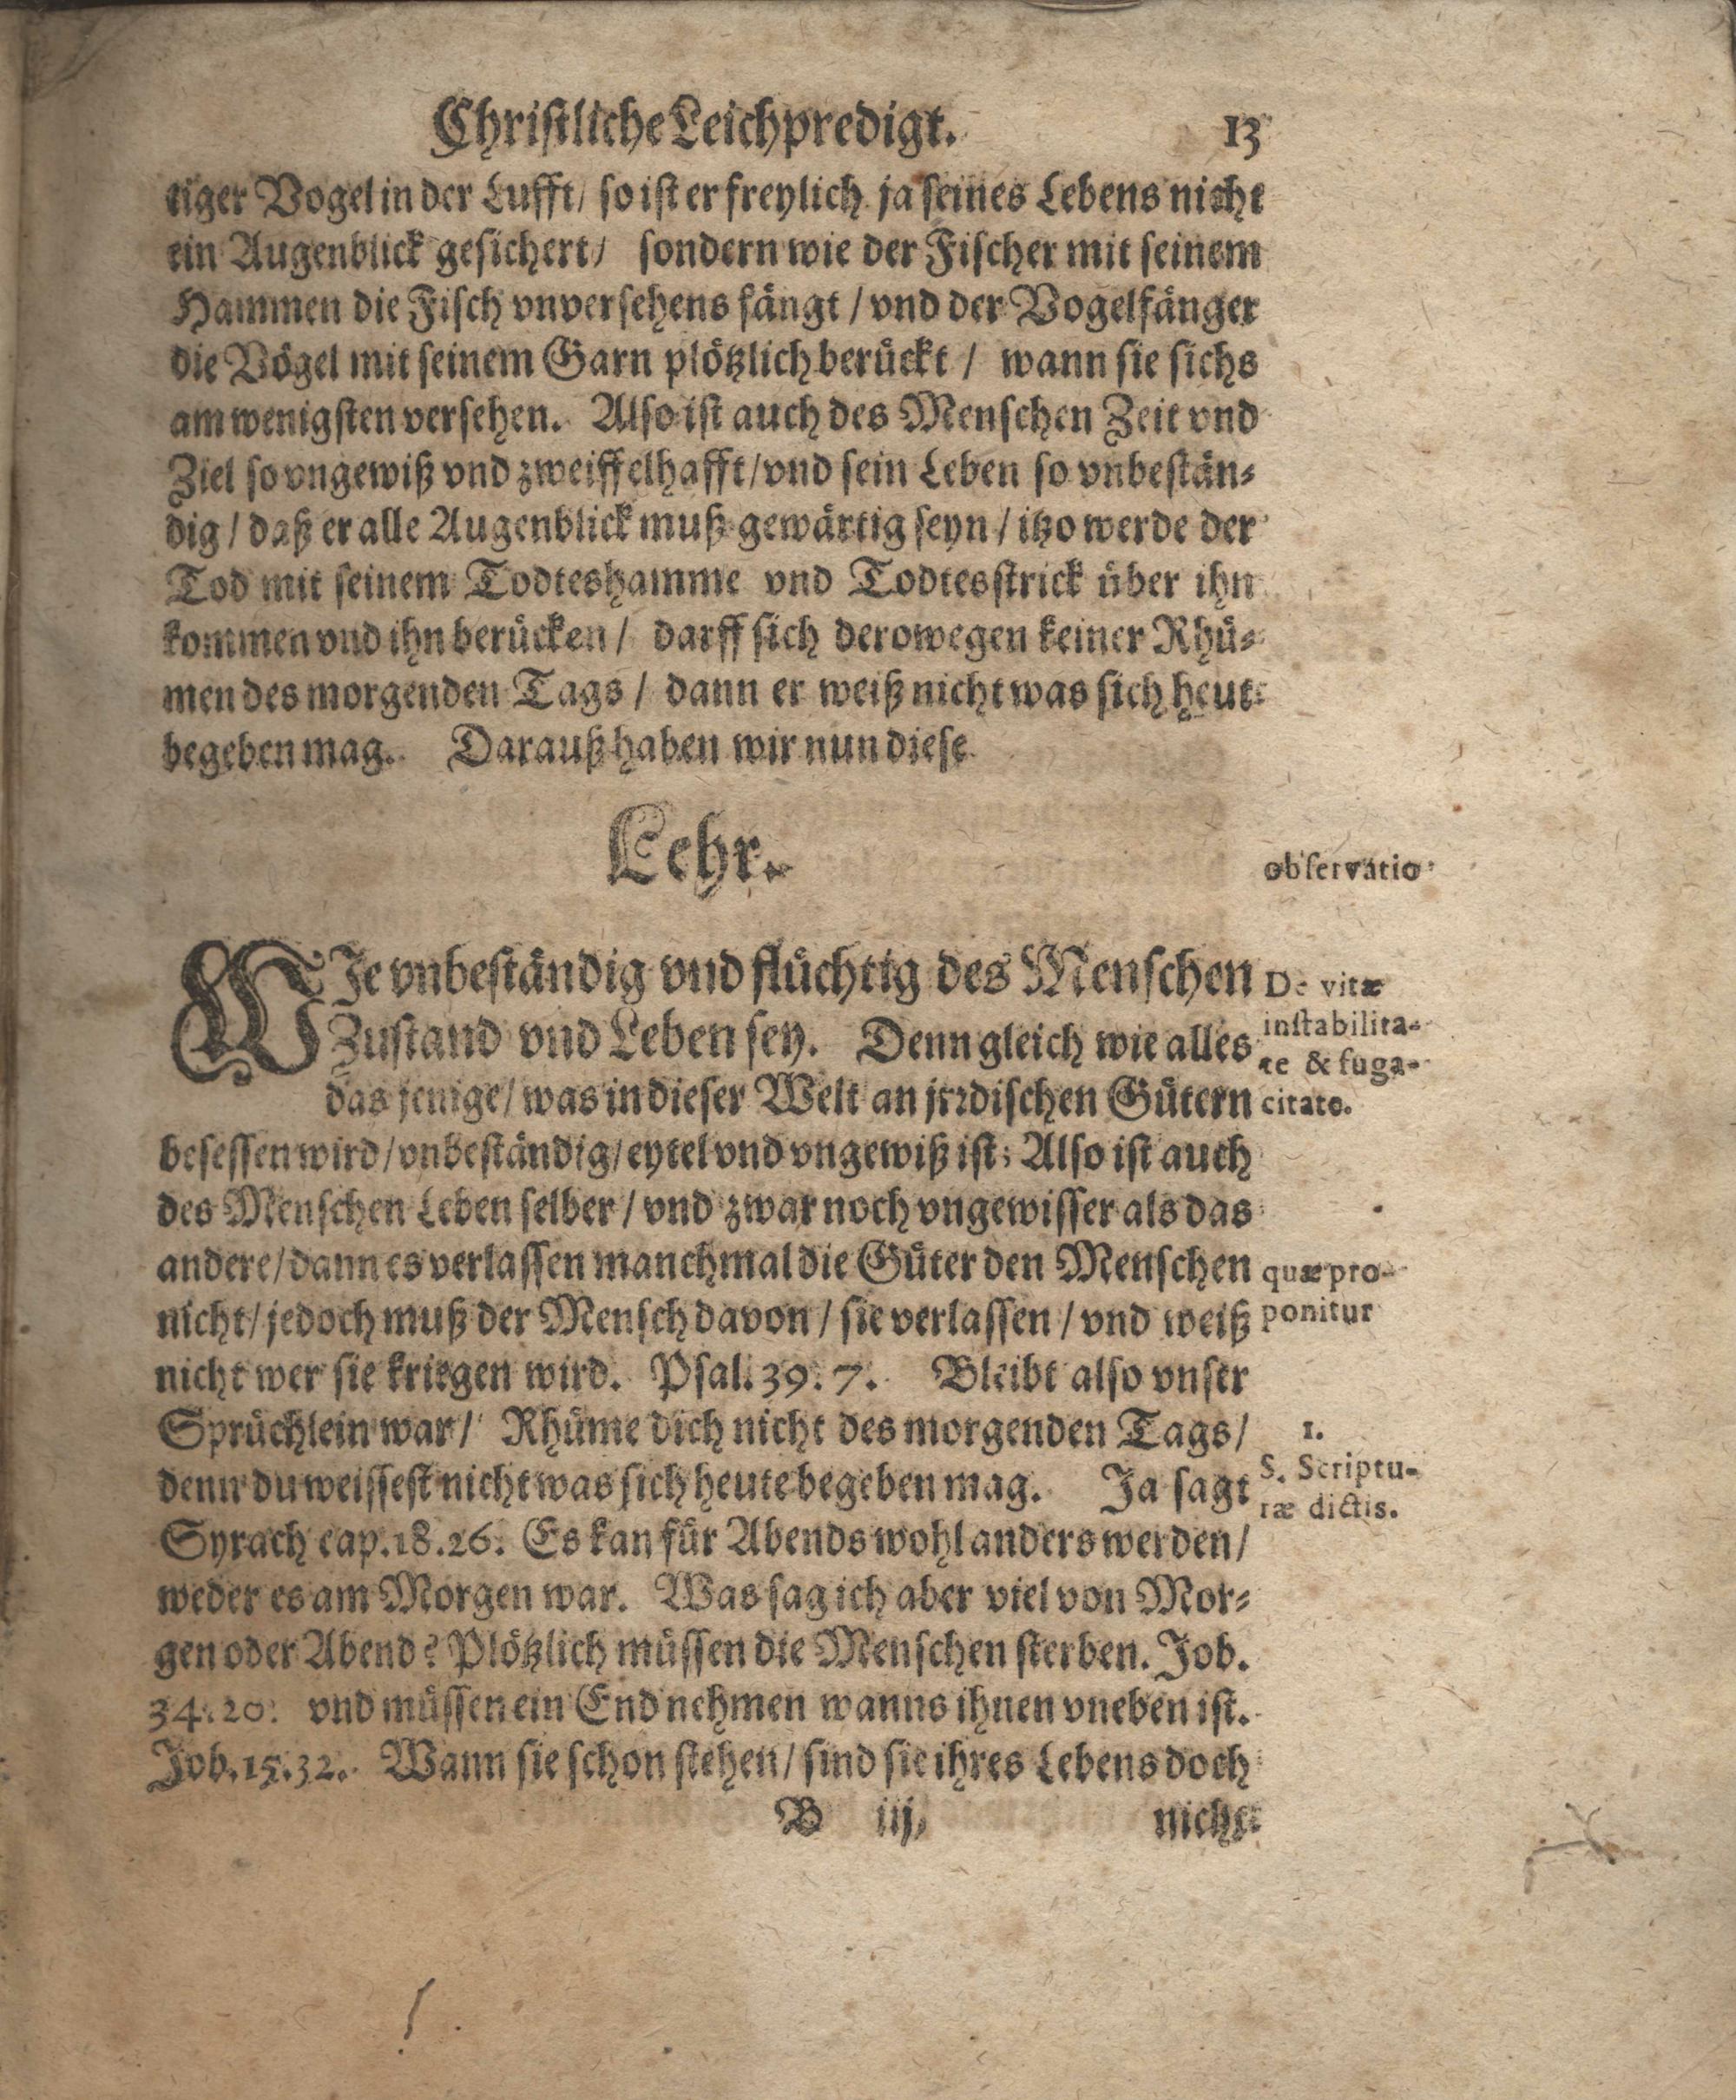 Christliche Leichpredigt. 13
tiger Vogel in der Lufft / so ist er freylich ja seines Lebens nicht
ein Augenblick gesichert / sondern wie der Fischer mit seinem
Hammen die Fisch vnversehens fängt / vnd der Vogelfänger
die Vögel mit seinem Garn plötzlich berückt / wann sie sichs
am wenigsten versehen. Also ist auch des Menschen Zeit vnd
Ziel so vngewiß vnd zweiffelhafft / vnd sein Leben so vnbestän-
dig / daß er alle Augenblick muß gewärtig seyn / itzo werde der
Tod mit seinem Todteshamme vnd Todtesstrick über ihn
kommen vnd ihn berücken / darff sich derowegen keiner Rhü-
men des morgenden Tags / dann er weiß nicht was sich heut
begeben mag. Darauß haben wir nun diese
Lehr.
observatio
WIe vnbeständig vnd flüchtig des Menschen
Zustand vnd Leben sey. Denn gleich wie alles
das jenige / was in dieser Welt an jrrdischen Gütern
De vitæ
instabilita-
te & fuga-
citate.
besessen wird / vnbeständig / eytel vnd vngewiß ist; Also ist auch
des Menschen Leben selber / vnd zwar noch vngewisser als das
andere / dann es verlassen manchmal die Güter den Menschen
nicht / jedoch muß der Mensch davon / sie verlassen / vnd weiß
quæ pro-
ponitur
nicht wer sie kriegen wird. Psal. 39. 7. Bleibt also vnser
Sprüchlein war / Rhüme dich nicht des morgenden Tags /
denn du weissest nicht was sich heute begeben mag. Ja sagt
1.
S. Scriptu-
ræ dictis.
Syrach cap. 18. 26. Es kan für Abends wohl anders werden /
weder es am Morgen war. Was sag ich aber viel von Mor-
gen oder Abend? Plötzlich müssen die Menschen sterben. Job.
34. 20. vnd müssen ein End nehmen wanns ihnen vneben ist.
Job. 15. 32. Wann sie schon stehen / sind sie ihres Lebens doch
B iij nicht